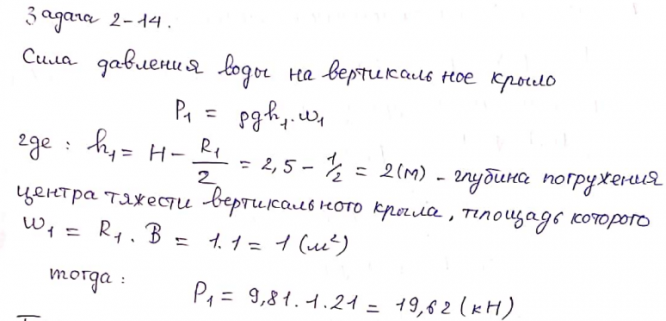 Задача 2-14.
Сила давления воды на вертикальное крыло
P₁ = ρgh₁·w₁
где: h₁ = H - R₁/2 = 2,5 - 1/2 = 2(м) - глубина погружения
центра тяжести вертикального крыла, площадь которого
w₁ = R₁·B = 1·1 = 1 (м²)
тогда:
P₁ = 9,81·1·21 = 19,62 (кН)